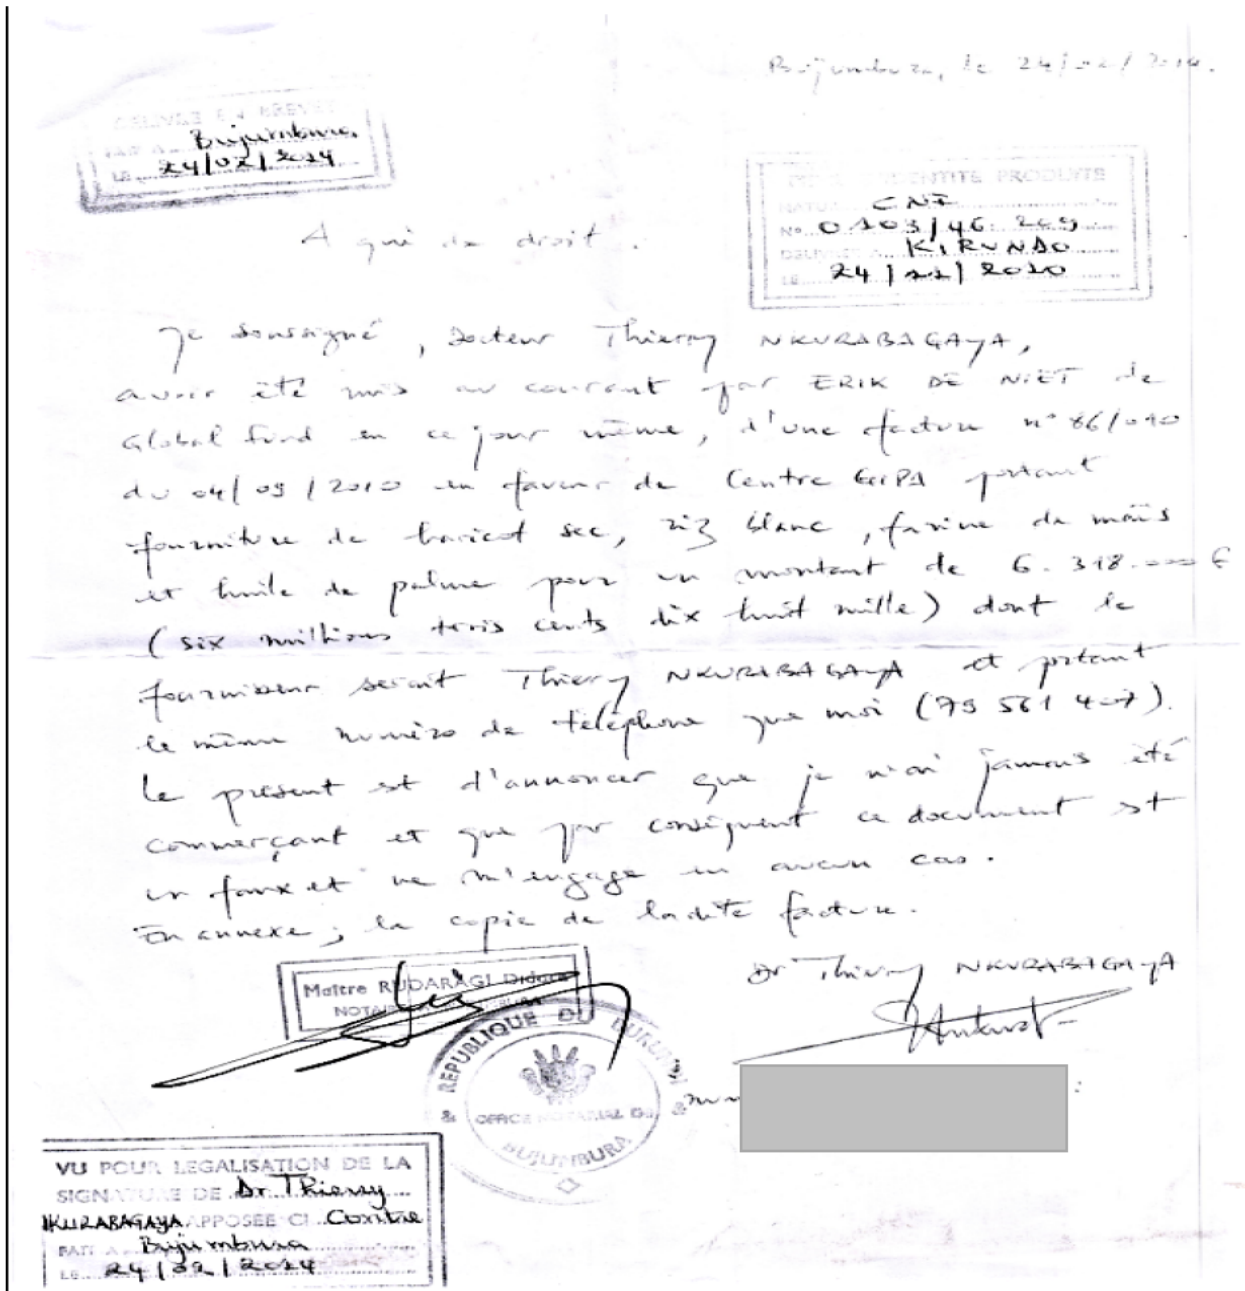 Bujumbura, le 24/02/2014.
DELIVRE EN BREVET
FAIT A Bujumbura
LE 24/02/2014
IDENTITE PRODUITE
NATURE CNI
No 0103/46.209
DELIVREE A KIRUNDO
LE 24/11/2010
A qui de droit.
Je soussigné, Docteur Thierry NKURABAGAYA,
avoir été mis au courant par ERIK DE NIET de
Global Fund en ce jour même, d'une facture n° 86/010
du 04/09/2010 en faveur de Centre GIPA portant
fourniture de haricot sec, riz blanc, farine de maïs
et huile de palme pour un montant de 6.318.000 F
(six millions trois cents dix huit mille) dont le
fournisseur serait Thierry NKURABAGAYA et portant
le même numéro de téléphone que moi (79 561 407).
Le présent est d'annoncer que je n'ai jamais été
commerçant et que par conséquent ce document est
un faux et ne m'engage en aucun cas.
En annexe, la copie de ladite facture.
Dr Thierry NKURABAGAYA
Maître RUDARAGI Didace
REPUBLIQUE DU BURUNDI
OFFICE NOTARIAL DE
BUJUMBURA
VU POUR LEGALISATION DE LA
SIGNATURE DE Dr Thierry
NKURABAGAYA APPOSEE CI Contre
FAIT A Bujumbura
LE 24/02/2014